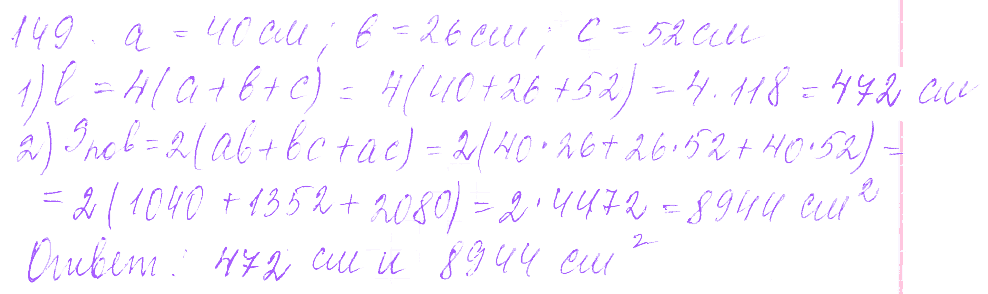 149. a = 40 см; b = 26 см; c = 52 см
1) l = 4(a + b + c) = 4(40 + 26 + 52) = 4 · 118 = 472 см
2) Sпов = 2(ab + bc + ac) = 2(40 · 26 + 26 · 52 + 40 · 52) =
= 2(1040 + 1352 + 2080) = 2 · 4472 = 8944 см²
Ответ: 472 см и 8944 см²